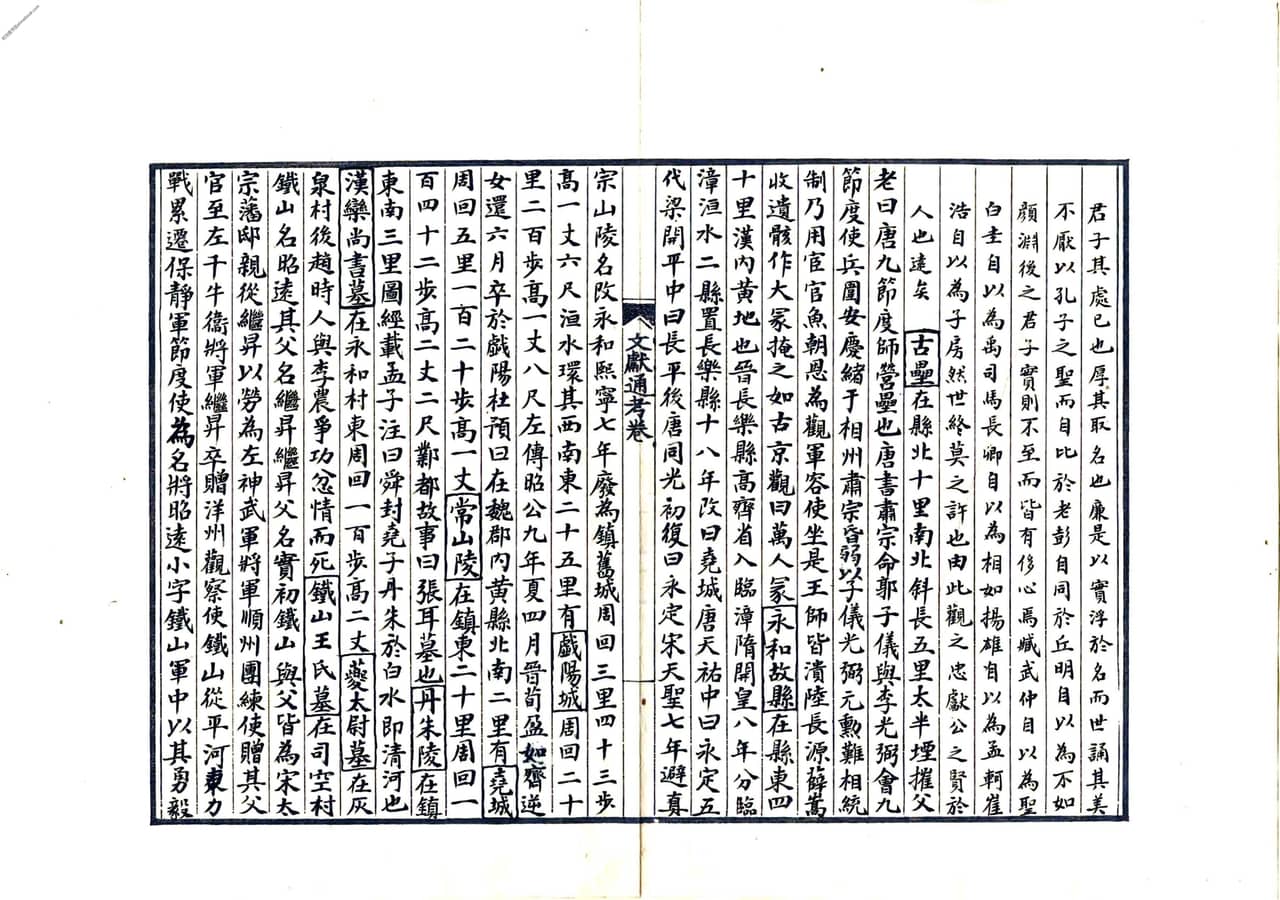 君子其處已也厚其取名也廉是以實浮於名而世誦其美
不厭以孔子之聖而自比於老彭自同於丘明自以為不如
顏淵後之君子實則不至而皆有侈心焉臧武仲自以為聖
白圭自以為禹司馬長卿自以為相如揚雄自以為孟軻崔
浩自以為子房然世終莫之許也由此觀之忠獻公之賢於
人也遠矣 古壘在縣北十里南北斜長五里太半堙摧父
老曰唐九節度師營壘也唐書肅宗命郭子儀與李光弼會九
節度使兵圍安慶緒于相州肅宗昏弱以子儀光弼元勳難相統
制乃用宦官魚朝恩為觀軍容使坐是王師皆潰陸長源薛嵩
收遺骸作大冢掩之如古京觀曰萬人冢永和故縣在縣東四
十里漢內黃地也晉長樂縣高齊省入臨漳隋開皇八年分臨
漳洹水二縣置長樂縣十八年改曰堯城唐天祐中曰永定五
代梁開平中曰長平後唐同光初復曰永定宋天聖七年避真
文獻通考卷
宗山陵名改永和熙寧七年廢為鎮舊城周回三里四十三步
高一丈六尺洹水環其西南東二十五里有戲陽城周回二十
里二百步高一丈八尺左傳昭公九年夏四月晉荀盈如齊逆
女還六月卒於戲陽杜預曰在魏郡內黃縣北南二里有堯城
周回五里一百二十步高一丈常山陵在鎮東二十里周回一
百四十二步高二丈二尺鄴都故事曰張耳墓也丹朱陵在鎮
東南三里圖經載孟子注曰舜封堯子丹朱於白水即清河也
漢欒尚書墓在永和村東周回一百步高二丈夔太尉墓在灰
泉村後趙時人與李農爭功忿情而死鐵山王氏墓在司空村
鐵山名昭遠其父名繼昇繼昇父名實初鐵山與父皆為宋太
宗藩邸親從繼昇以勞為左神武軍將軍順州團練使贈其父
官至左千牛衞將軍繼昇卒贈洋州觀察使鐵山從平河東力
戰累遷保靜軍節度使為名將昭遠小字鐵山軍中以其勇毅